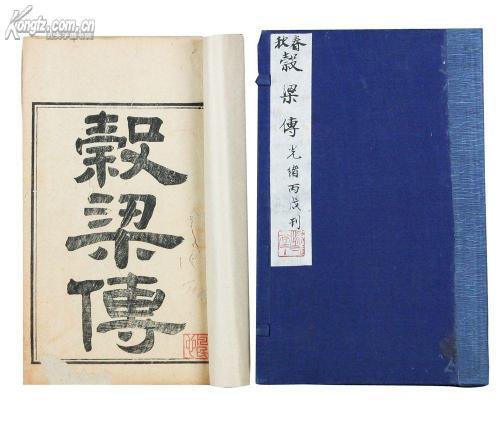 Kongfz.com
穀梁傳
春秋
穀梁傳光緒丙戌刊